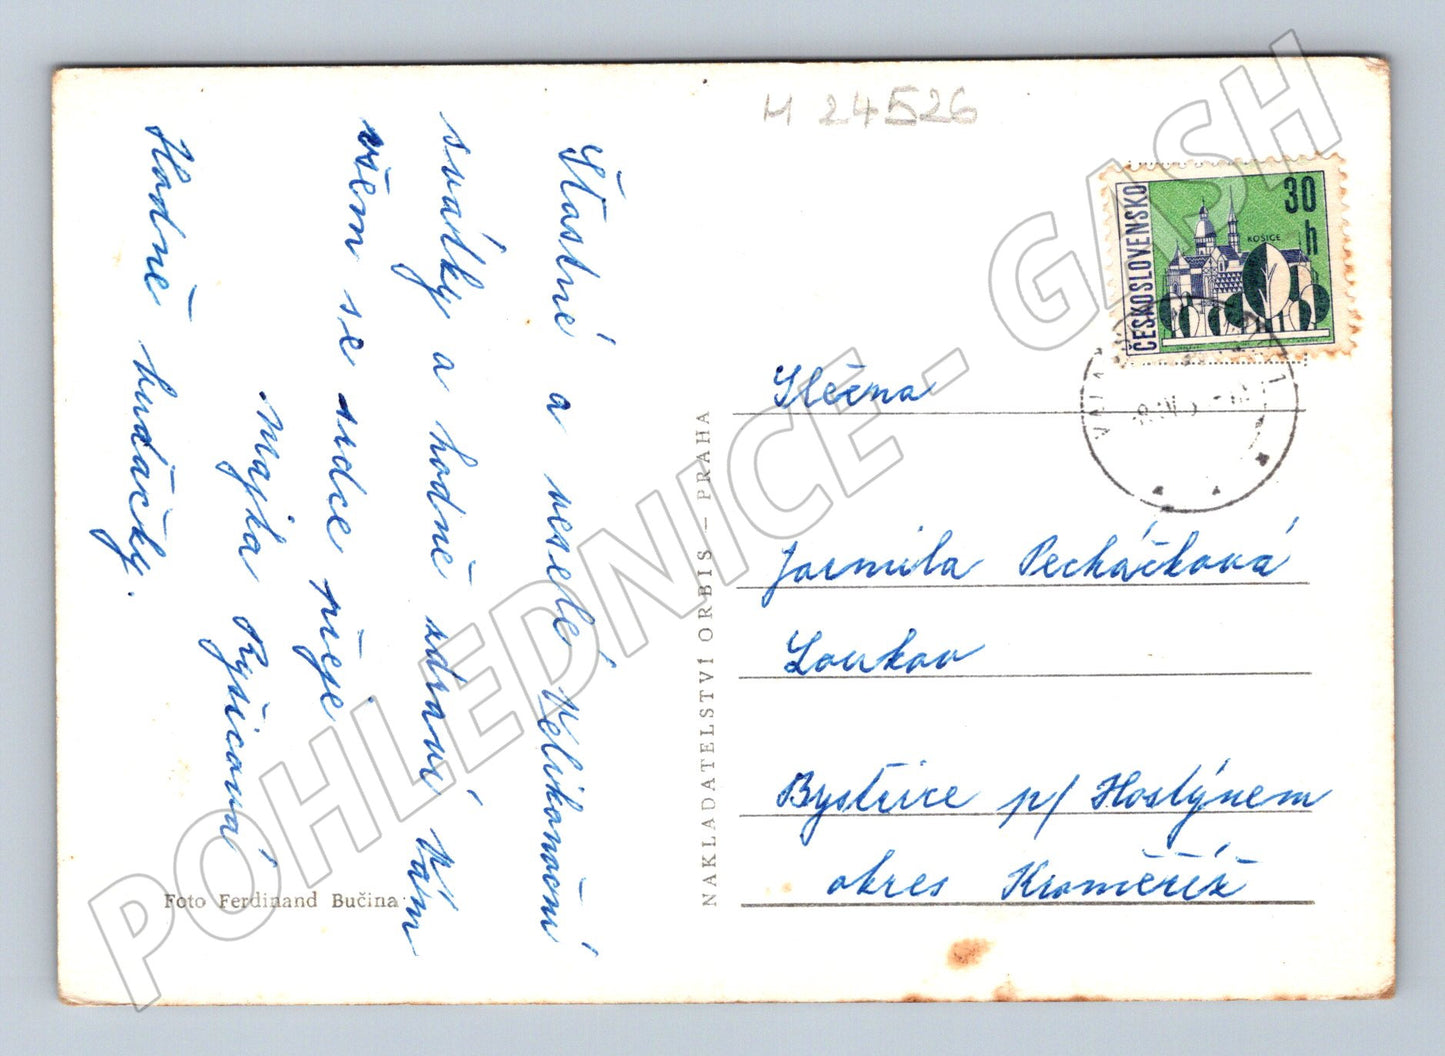 H 24526
Šťastné a veselé Velikonoční
svátky a hodně zdraví Vám
všem ze srdce přeje
Majka Ryšicová
Hodně hudačky.
Foto Ferdinand Bučina
NAKLADATELSTVÍ ORBIS — PRAHA
ČESKOSLOVENSKO
30
h
KOŠICE
Slečna
Jarmila Pecháčková
Loukov
Bystřice p/ Hostýnem
okres Kroměříž
POHLEDNICE - GASH